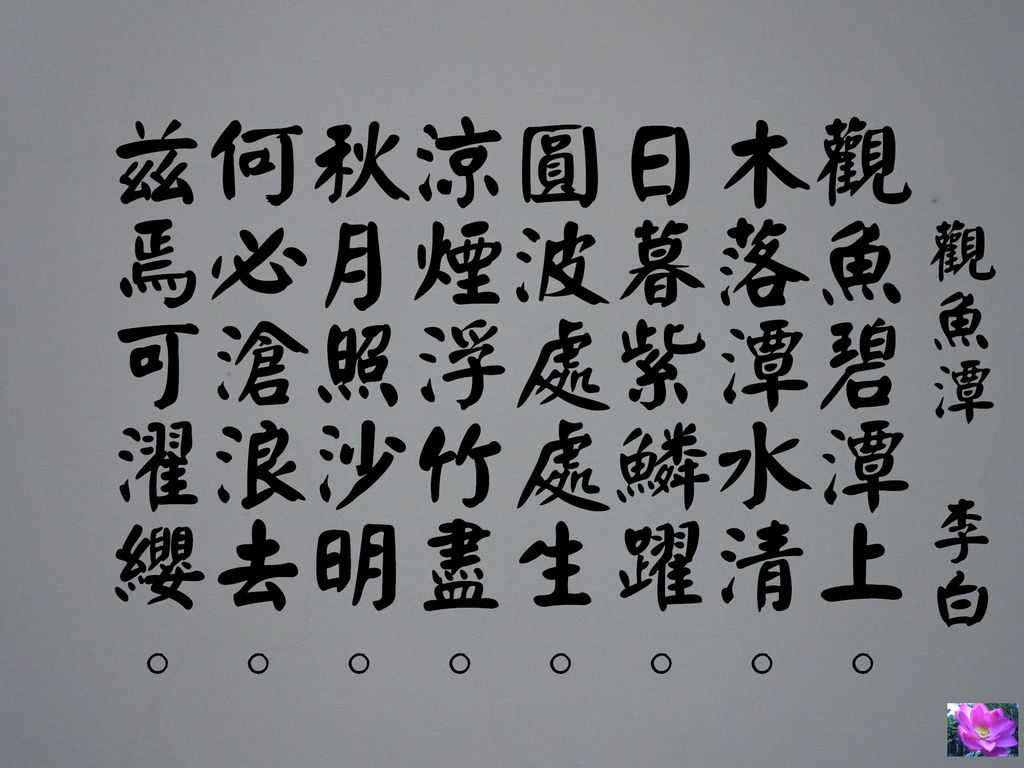 觀魚潭 李白
觀魚碧潭上。
木落潭水清。
日暮紫鱗躍。
圓波處處生。
涼煙浮竹盡。
秋月照沙明。
何必滄浪去。
茲焉可濯纓。